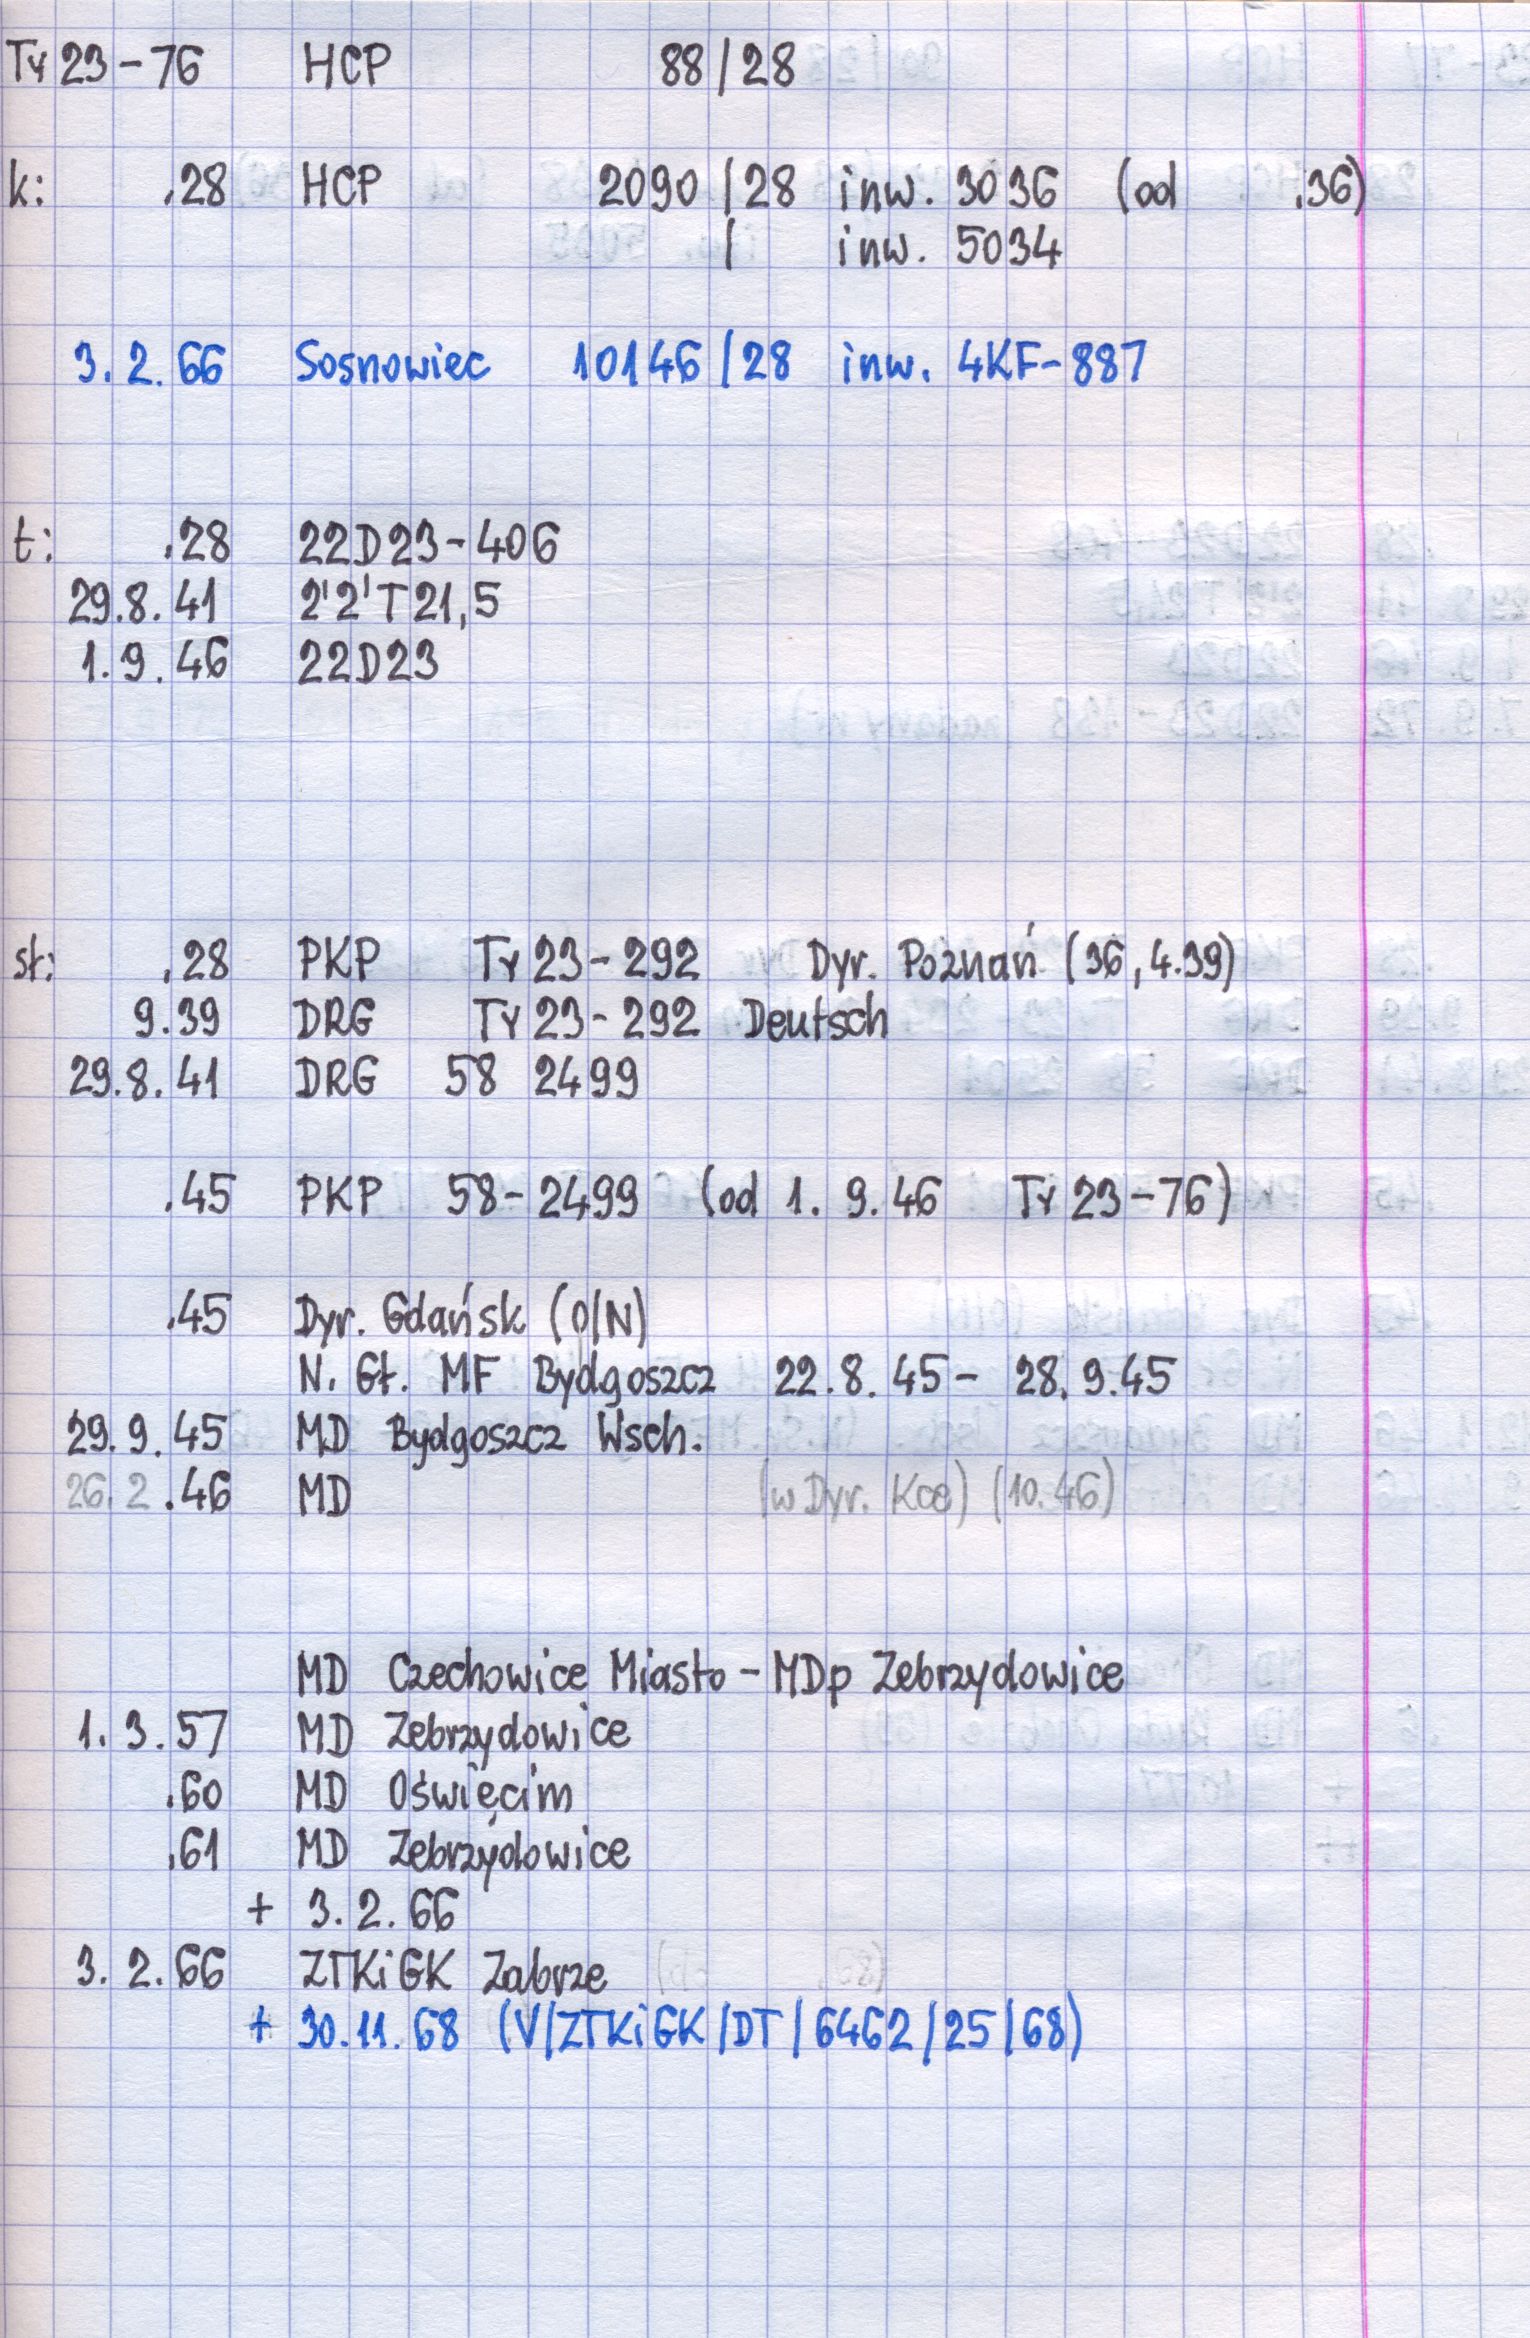 Ty 23-76 HCP 88/28
k: .28 HCP 2090/28 inw. 3036 (od .36)
/ inw. 5034
3.2.66 Sosnowiec 10146/28 inw. 4KF-887
t: .28 22D23-406
29.8.41 2'2'T21,5
1.9.46 22D23
st: .28 PKP Ty 23-292 Dyr. Poznań (36, 4.39)
9.39 DRG Ty 23-292 Deutsch
29.8.41 DRG 58 2499
.45 PKP 58-2499 (od 1.9.46 Ty 23-76)
.45 Dyr. Gdańsk (O/N)
N. Gł. MF Bydgoszcz 22.8.45- 28.9.45
29.9.45 MD Bydgoszcz Wsch.
26.2.46 MD (w Dyr. Kce) (10.46)
MD Czechowice Miasto - MDp Zebrzydowice
1.3.57 MD Zebrzydowice
.60 MD Oświęcim
.61 MD Zebrzydowice
+ 3.2.66
3.2.66 ZTKiGK Zabrze
+ 30.11.68 (V/ZTKiGK/DT/6462/25/68)